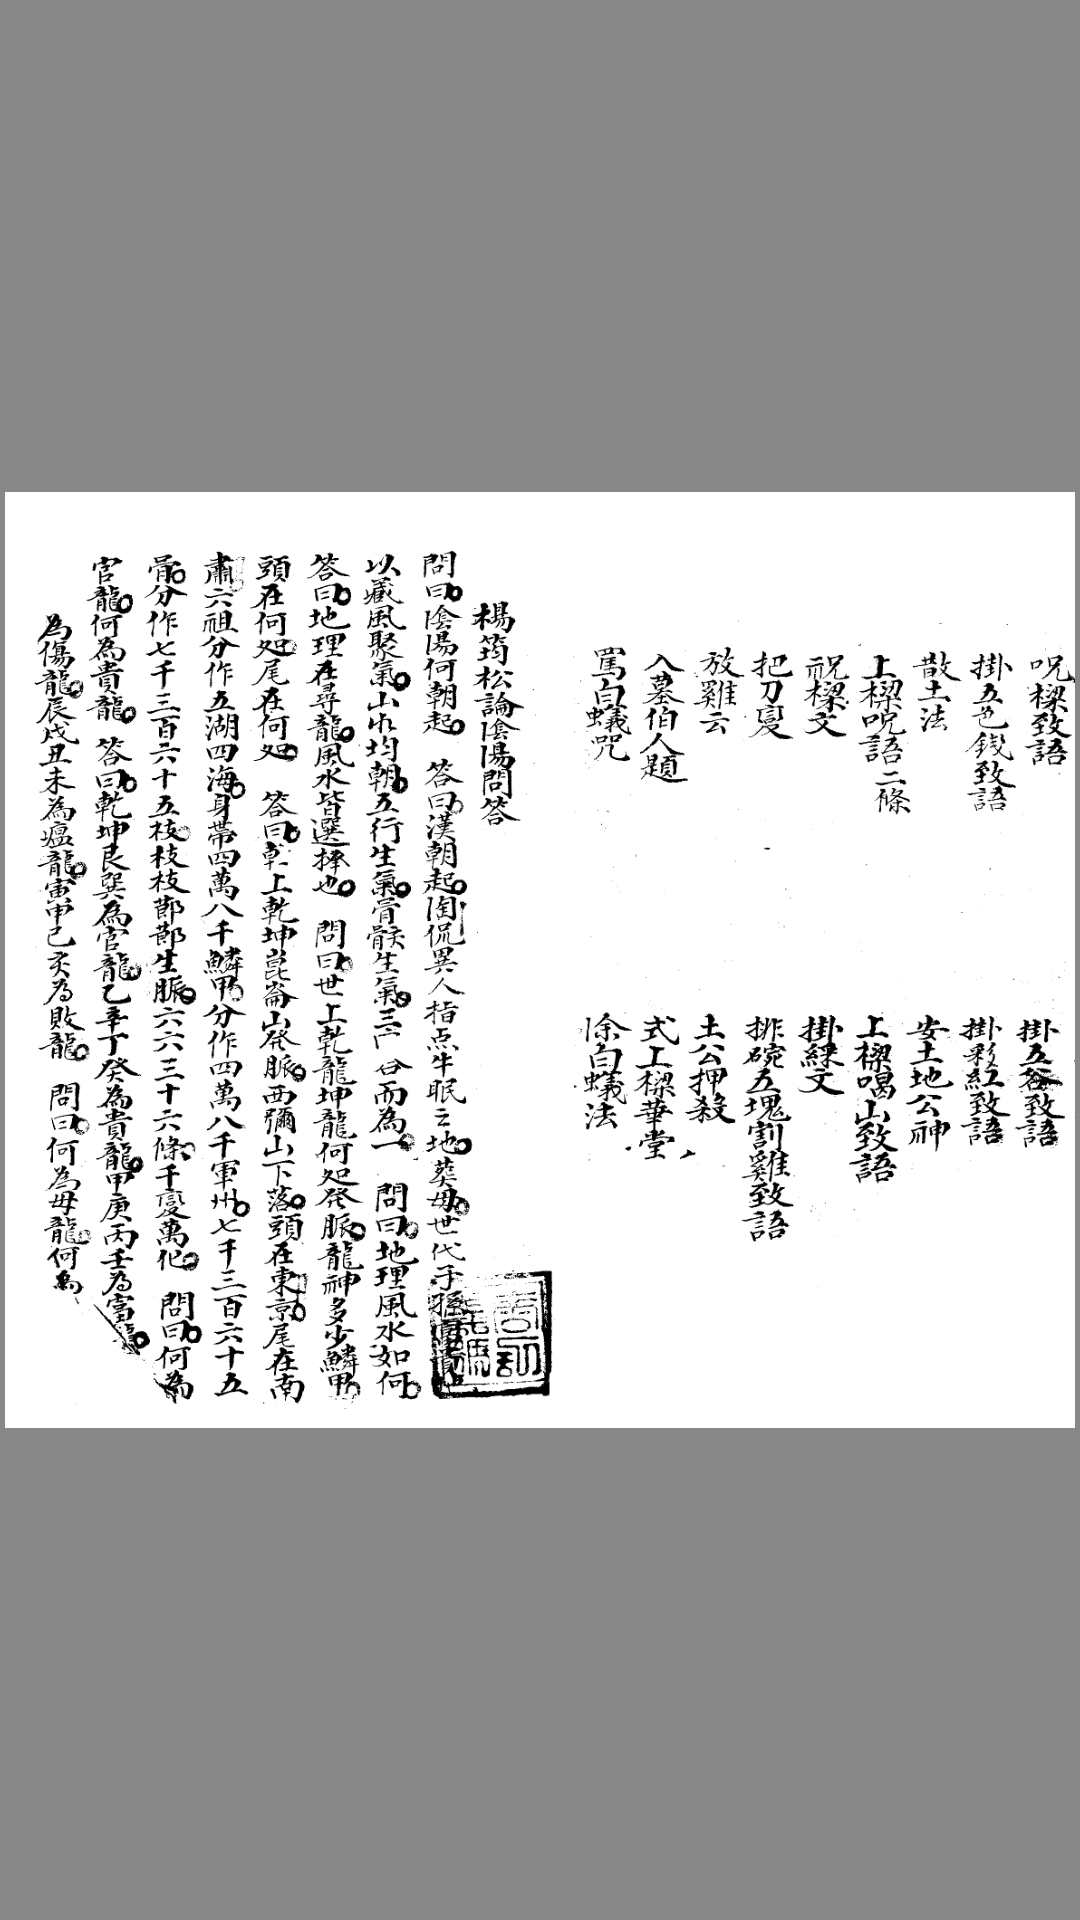 呪樑致語
掛五谷致語
掛五色錢致語
掛彩紅致語
散土法
安土地公神
上樑呪語二條
上樑喝山致語
祝樑文
掛綵文
把刀變
排碗五塊割雞致語
放雞云
土公押殺
入墓伯人題
式上樑華堂
罵白蟻咒
除白蟻法
楊筠松論陰陽問答
問曰陰陽何朝起 答曰漢朝起陶侃異人指点牛眠之地葬母世代子孫富貴
以藏風聚氣山水均朝五行生氣骨骸生氣三合而為一 問曰地理風水如何
答曰地理在尋龍風水皆選擇也 問曰世上乾龍坤龍何処發脈龍神多少鱗甲
頭在何処尾在何処 答曰乾上乾坤崑崙山發脈西彌山下落頭在東京尾在南
肅六祖分作五湖四海身帶四萬八千鱗甲分作四萬八千軍州七千三百六十五
骨分作七千三百六十五枝枝枝節節生脈六六三十六條千變萬化 問曰何為
官龍何為貴龍 答曰乾坤艮巽為官龍乙辛丁癸為貴龍甲庚丙壬為富龍
為傷龍辰戌丑未為瘟龍寅申巳亥為敗龍 問曰何為母龍何為